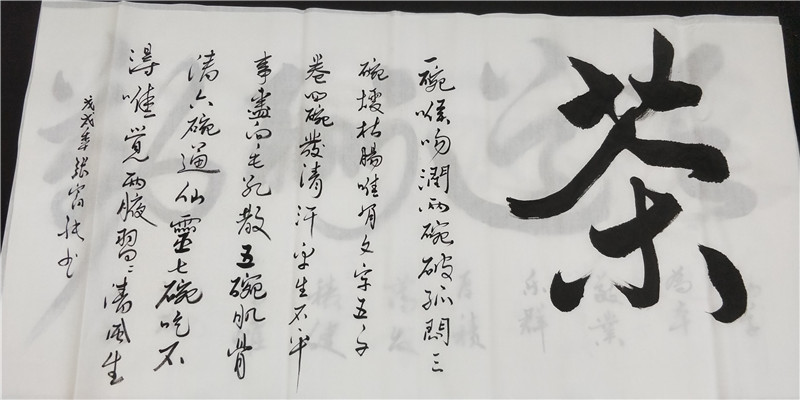 茶
一碗喉吻潤兩碗破孤悶三
碗搜枯腸唯有文字五千
卷四碗發清汗平生不平
事盡向毛孔散五碗肌骨
清六碗通仙靈七碗吃不
得唯覺兩腋習習清風生
戊戌年張